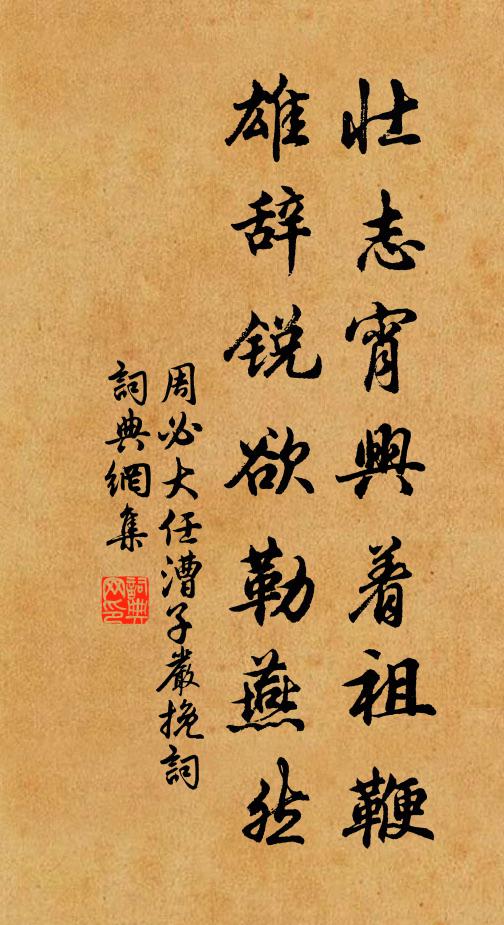 壮志宵興着祖鞭
雄辞锐欲勒燕然
周必大任漕子嚴挽詞
詞典網集
詞典網印